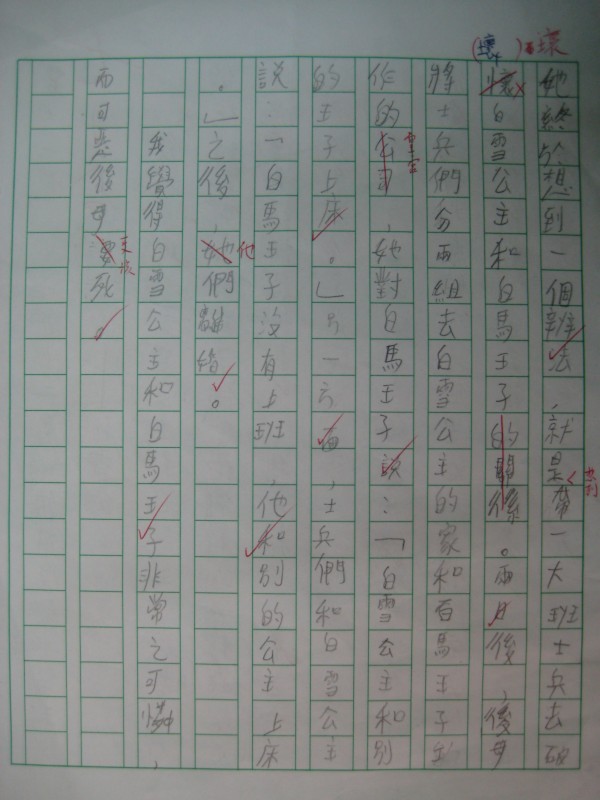 她終於想到一個辦法,就是帶一大班士兵去破
懷白雪公主和白馬王子的關係。兩日後,後母
將士兵們分兩組去白雪公主的家和百馬王子
作的,她對白馬王子說:「白雪公主和別
的王子上床。」另一方面,士兵們和白雪公主
說:「白馬王子沒有上班,他和別的公主上床
。」之後,她們離婚。
我覺得白雪公主和白馬王子非常之可憐,
而可惡後母死。
(壞)
皇宮
他